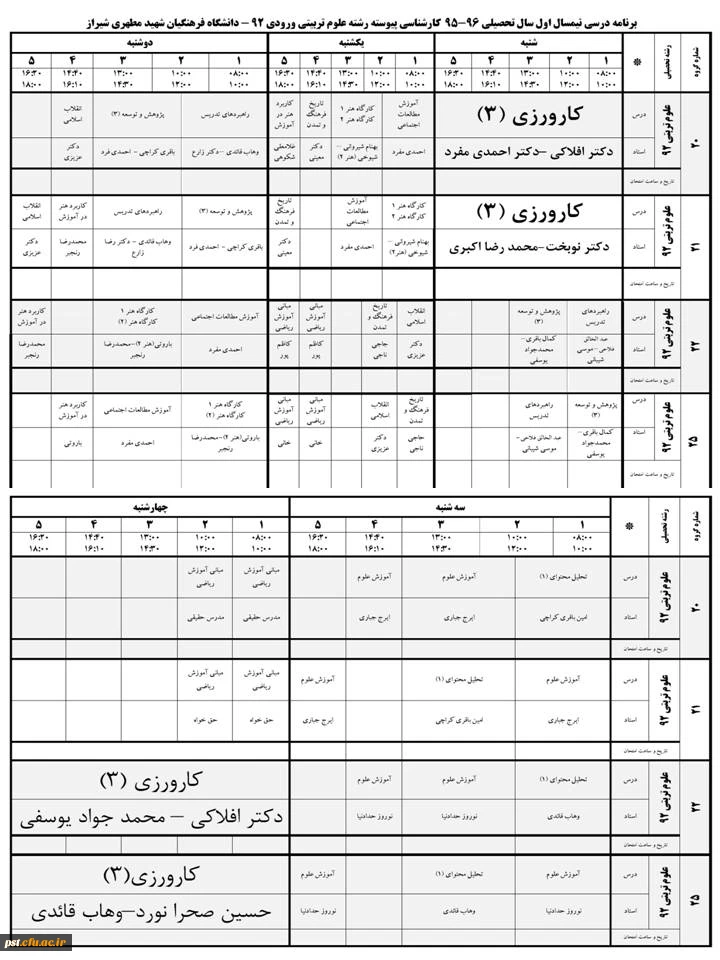 برنامه درسی نیمسال اول سال تحصیلی ۹۶-۹۵ کارشناسی پیوسته رشته علوم تربیتی ورودی ۹۲ - دانشگاه فرهنگیان شهید مطهری شیراز
شماره گروه رشته تحصیلی * شنبه یکشنبه دوشنبه
۱ ۲ ۳ ۴ ۵ ۱ ۲ ۳ ۴ ۵ ۱ ۲ ۳ ۴ ۵
۰۸:۰۰ ۱۰:۰۰ ۱۳:۰۰ ۱۴:۴۰ ۱۶:۲۰ ۰۸:۰۰ ۱۰:۰۰ ۱۳:۰۰ ۱۴:۴۰ ۱۶:۲۰ ۰۸:۰۰ ۱۰:۰۰ ۱۳:۰۰ ۱۴:۴۰ ۱۶:۲۰
۱۰:۰۰ ۱۲:۰۰ ۱۴:۳۰ ۱۶:۱۰ ۱۸:۰۰ ۱۰:۰۰ ۱۲:۰۰ ۱۴:۳۰ ۱۶:۱۰ ۱۸:۰۰ ۱۰:۰۰ ۱۲:۰۰ ۱۴:۳۰ ۱۶:۱۰ ۱۸:۰۰
۲۰ علوم تربیتی ۹۲
درس کارورزی (۳) آموزش مطالعات اجتماعی کارگاه هنر ۱ کارگاه هنر ۲ تاریخ فرهنگ و تمدن کاربرد هنر در آموزش راهبردهای تدریس پژوهش و توسعه (۳) انقلاب اسلامی
استاد دکتر افلاکی -دکتر احمدی مفرد احمدی مفرد بهنام شیروانی - شیوخی (هنر ۲) دکتر معینی غلامعلی شکوهی وهاب قائدی -دکتر زارع باقری کراچی - احمدی فرد دکتر عزیزی
تاریخ و ساعت امتحان
۲۱ علوم تربیتی ۹۲
درس کارورزی (۳) کارگاه هنر ۱ کارگاه هنر ۲ آموزش مطالعات اجتماعی تاریخ فرهنگ و تمدن پژوهش و توسعه (۳) راهبردهای تدریس کاربرد هنر در آموزش انقلاب اسلامی
استاد دکتر نوبخت-محمد رضا اکبری بهنام شیروانی - شیوخی (هنر۲) احمدی مفرد دکتر معینی باقری کراچی - احمدی فرد وهاب قائدی - دکتر رضا زارع محمدرضا رنجبر دکتر عزیزی
تاریخ و ساعت امتحان
۲۲ علوم تربیتی ۹۲
درس راهبردهای تدریس پژوهش و توسعه (۳) انقلاب اسلامی تاریخ فرهنگ و تمدن مبانی آموزش ریاضی مبانی آموزش ریاضی آموزش مطالعات اجتماعی کارگاه هنر ۱ کارگاه هنر (۲) کاربرد هنر در آموزش
استاد عبد الخالق فلاحی-موسی شیبانی کمال باقری- محمدجواد یوسفی دکتر عزیزی حاجی ناجی کاظم پور کاظم پور احمدی مفرد باروتی(هنر ۲)-محمدرضا رنجبر محمدرضا رنجبر
تاریخ و ساعت امتحان
۲۵ علوم تربیتی ۹۲
درس پژوهش و توسعه (۳) راهبردهای تدریس تاریخ فرهنگ و تمدن انقلاب اسلامی مبانی آموزش ریاضی مبانی آموزش ریاضی کارگاه هنر ۱ کارگاه هنر (۲) آموزش مطالعات اجتماعی کاربرد هنر در آموزش
استاد کمال باقری- محمدجواد یوسفی عبد الخالق فلاحی- موسی شیبانی حاجی ناجی دکتر عزیزی خانی خانی باروتی(هنر ۲)-محمدرضا رنجبر احمدی مفرد باروتی
تاریخ و ساعت امتحان
شماره گروه رشته تحصیلی * سه شنبه چهارشنبه
۱ ۲ ۳ ۴ ۵ ۱ ۲ ۳ ۴ ۵
۰۸:۰۰ ۱۰:۰۰ ۱۳:۰۰ ۱۴:۴۰ ۱۶:۲۰ ۰۸:۰۰ ۱۰:۰۰ ۱۳:۰۰ ۱۴:۴۰ ۱۶:۲۰
۱۰:۰۰ ۱۲:۰۰ ۱۴:۳۰ ۱۶:۱۰ ۱۸:۰۰ ۱۰:۰۰ ۱۲:۰۰ ۱۴:۳۰ ۱۶:۱۰ ۱۸:۰۰
۲۰ علوم تربیتی ۹۲
درس تحلیل محتوای (۱) آموزش علوم آموزش علوم مبانی آموزش ریاضی مبانی آموزش ریاضی
استاد امین باقری کراچی ایرج جباری ایرج جباری مدرس حقیقی مدرس حقیقی
تاریخ و ساعت امتحان
۲۱ علوم تربیتی ۹۲
درس آموزش علوم تحلیل محتوای (۱) آموزش علوم مبانی آموزش ریاضی مبانی آموزش ریاضی
استاد ایرج جباری امین باقری کراچی ایرج جباری حق خواه حق خواه
تاریخ و ساعت امتحان
۲۲ علوم تربیتی ۹۲
درس تحلیل محتوای (۱) آموزش علوم آموزش علوم کارورزی (۳)
استاد وهاب قائدی نوروز حدادنیا نوروز حدادنیا دکتر افلاکی - محمد جواد یوسفی
تاریخ و ساعت امتحان
۲۵ علوم تربیتی ۹۲
درس آموزش علوم تحلیل محتوای (۱) آموزش علوم کارورزی(۳)
استاد نوروز حدادنیا وهاب قائدی نوروز حدادنیا حسین صحرا نورد-وهاب قائدی
تاریخ و ساعت امتحان
pst.cfu.ac.ir